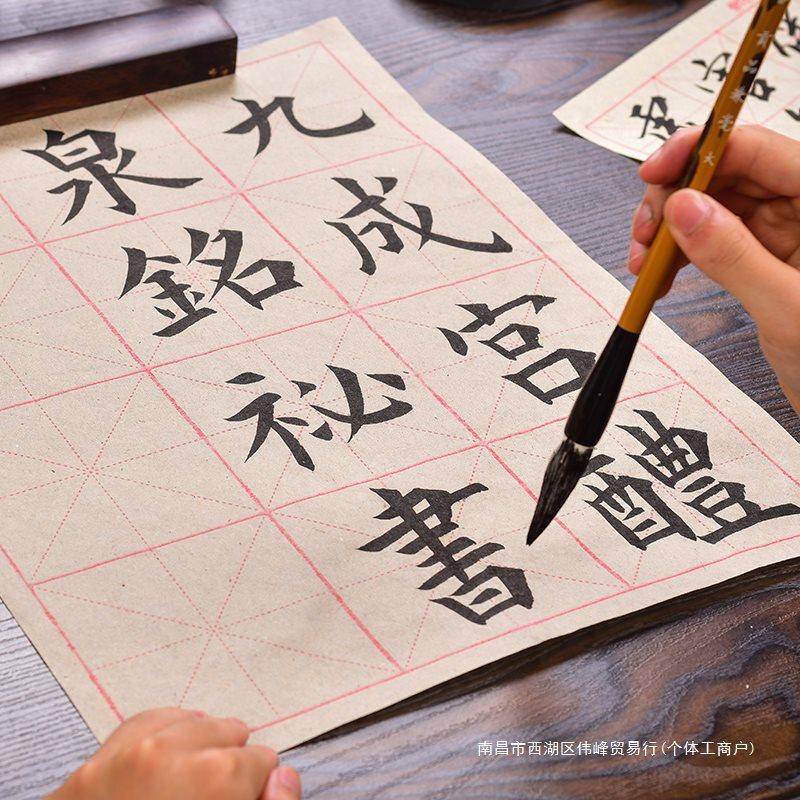 九成宮醴
泉銘祕書
品兼毫大
南昌市西湖区伟峰贸易行(个体工商户)